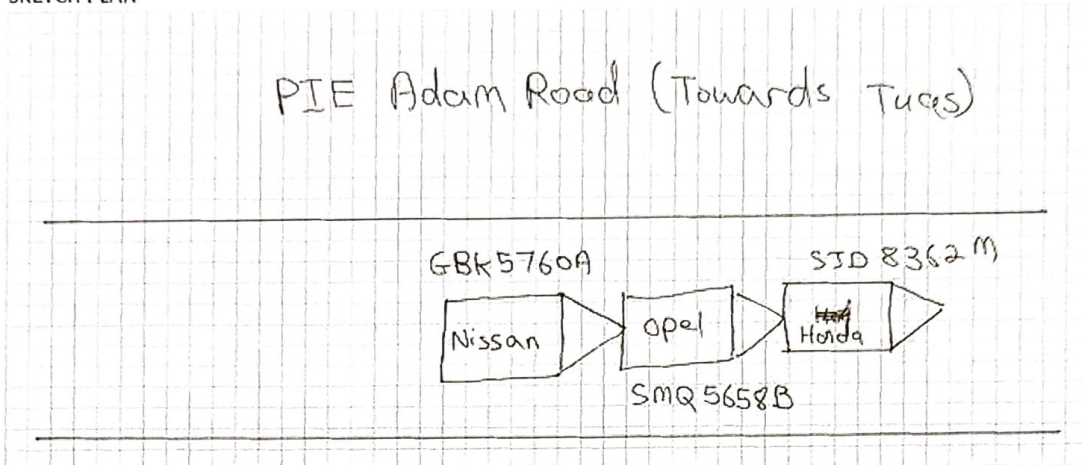 SKETCH PLAN
PIE Adam Road (Towards Tuas)
GBK5760A
SJD 8362M
Nissan
Opel
Honda
SMQ5658B